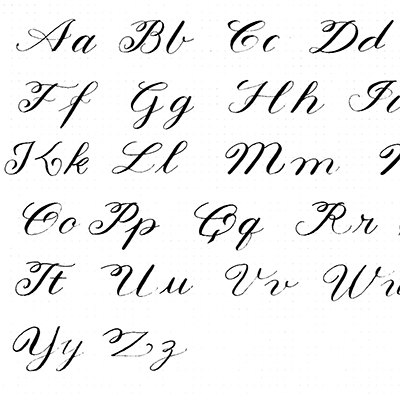 Aa Bb Cc Dd
Ff Gg Hh
Kk Ll Mm
Oo Pp Qq Rr
Tt Uu Vv
Yy Zz